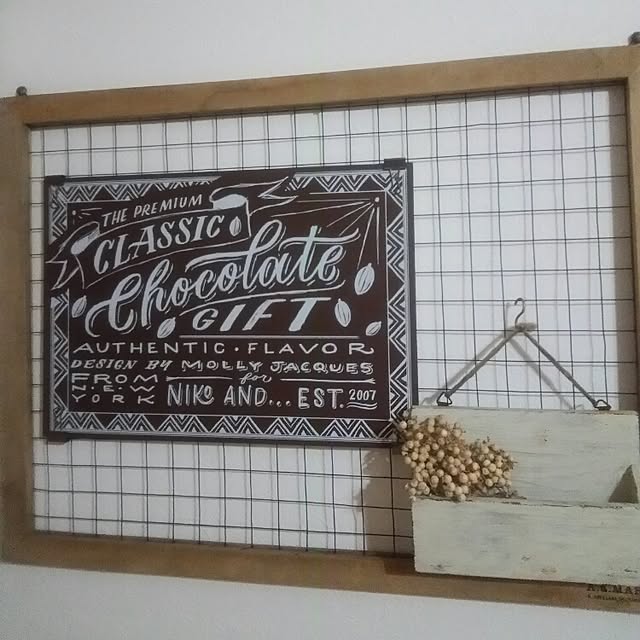 THE PREMIUM
CLASSIC
Chocolate
GIFT
AUTHENTIC · FLAVOR
DESIGN BY MOLLY JACQUES
FROM for
N.E.W YORK NIKO AND... EST. 2007